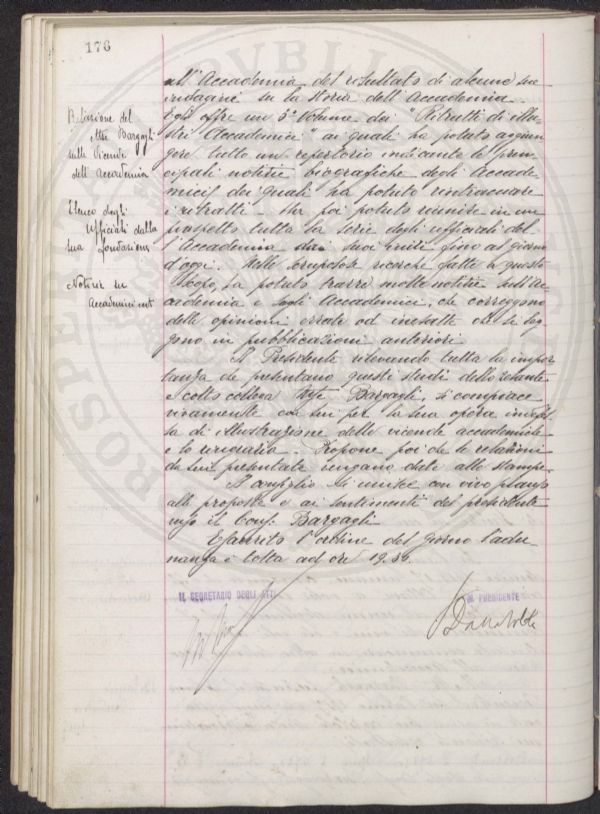 176
all'Accademia del resultato di alcune sue
indagini su la storia dell'Accademia.
Egli offre un 3° Volume dei "Ritratti di Illu
stri Accademici" ai quali ha potuto aggiun
gere tutto un repertorio indicante le prin
cipali notizie biografiche degli Accade
mici dei quali ha potuto rintracciare
i ritratti. Ha poi potuto riunire in un
prospetto tutta la serie degli ufficiali del
l'Accademia dai suoi inizi fino al giorno
d'oggi. Nelle scrupolose ricerche fatte a questo
scopo, ha potuto trarre molte notizie sull'Ac
cademia e sugli Accademici, che correggono
delle opinioni errate od inesatte che si leg
gono in pubblicazioni anteriori.
Il Presidente rilevando tutta la impor
tanza che presentano questi studi dello zelante
e colto collega Bargagli, si compiace
vivamente con lui per la sua opera
sa di illustrazione delle vicende accademiche
e lo ringrazia. Propone poi che le relazioni
da lui presentate vengano date alle stampe.
Il consiglio si unisce con vivo plauso
alle proposte e ai sentimenti del presidente
verso il Cons. Bargagli.
Esaurito l'ordine del giorno l'adu
nanza è tolta ad ore 19.30.
Relazione del
Bargagli
sulle Vicende
dell'Accademia
Elenco degli
Ufficiali dalla
sua fondazione
Notizie su
Accademici
IL SEGRETARIO DEGLI ATTI
IL PRESIDENTE